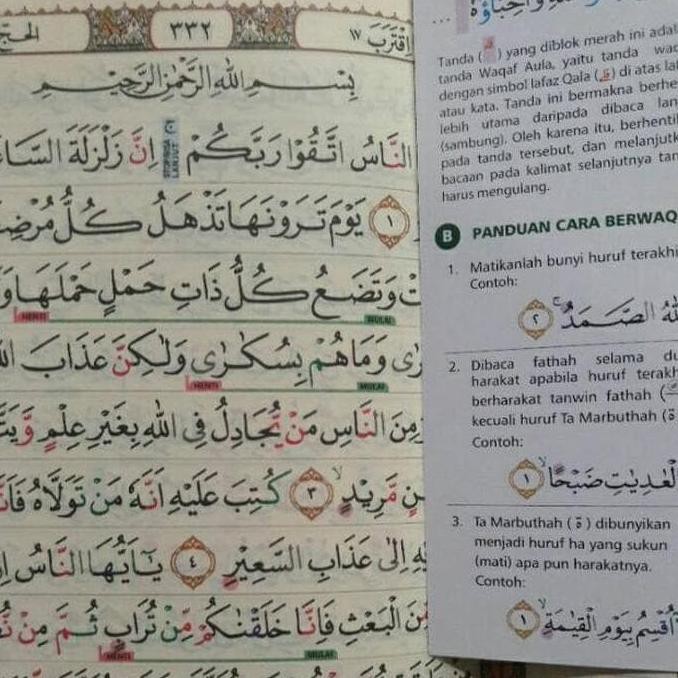 اِقْتَرَبَ ١٧ ٣٣٢ الحَجّ
بِسْمِ اللّٰهِ الرَّحْمٰنِ الرَّحِيْمِ
النَّاسُ اتَّقُوْا رَبَّكُمْ اِنَّ زَلْزَلَةَ
١ يَوْمَ تَرَوْنَهَا تَذْهَلُ كُلُّ
وَتَضَعُ كُلُّ ذَاتِ حَمْلٍ حَمْلَهَا
HENTI MULAI
وَمَا هُمْ بِسُكٰرٰى وَلٰكِنَّ عَذَابَ
HENTI MULAI
مِنَ النَّاسِ مَنْ يُّجَادِلُ فِى اللّٰهِ بِغَيْرِ عِلْمٍ
مَّرِيْدٍ ٣ كُتِبَ عَلَيْهِ اَنَّهٗ مَنْ تَوَلَّاهُ
اِلٰى عَذَابِ السَّعِيْرِ ٤ يٰٓاَيُّهَا النَّاسُ
مِّنَ الْبَعْثِ فَاِنَّا خَلَقْنٰكُمْ مِّنْ تُرَابٍ ثُمَّ مِنْ
HENTI MULAI
...
Tanda ( ) yang diblok merah ini
tanda Waqaf Aula, yaitu tanda
dengan simbol lafaz Qala ( ) di atas
atau kata. Tanda ini bermakna
lebih utama daripada dibaca
(sambung). Oleh karena itu,
pada tanda tersebut, dan
bacaan pada kalimat selanjutnya
harus mengulang.
B PANDUAN CARA
1. Matikanlah bunyi huruf
Contoh:
الصَّمَدُ ٢
2. Dibaca fathah selama
harakat apabila huruf
berharakat tanwin fathah
kecuali huruf Ta Marbuthah (ة
Contoh:
ضَبْحًا ١
3. Ta Marbuthah ( ة ) dibunyikan
menjadi huruf ha yang sukun
(mati) apa pun harakatnya.
Contoh:
اُقْسِمُ بِيَوْمِ الْقِيٰمَةِ ١